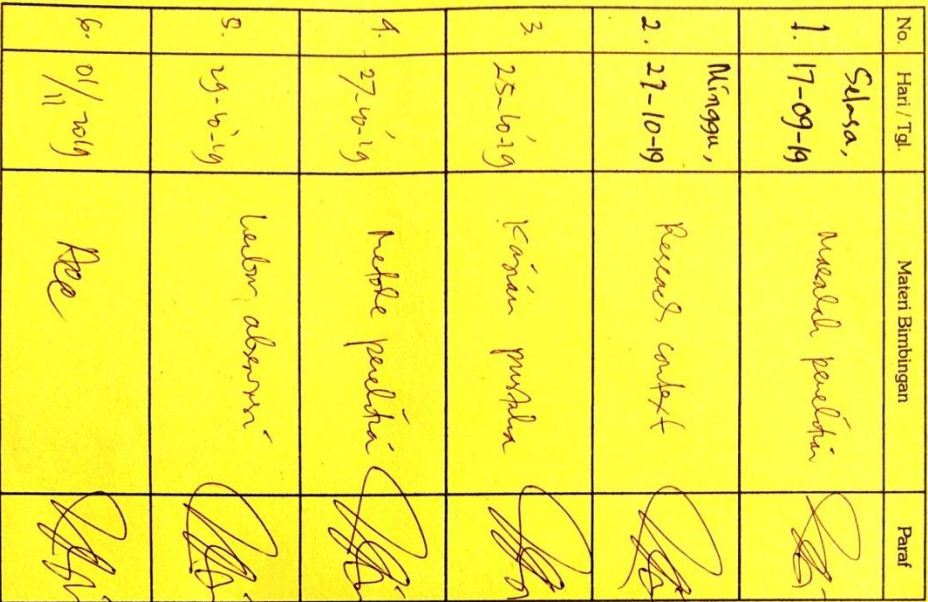 No. Hari / Tgl. Materi Bimbingan Paraf
1. Selasa, 17-09-19 Masalah penelitian
2. Minggu, 27-10-19 Research context
3. 25-10-19 Kajian pustaka
4. 27-10-19 Metode penelitian
5. 29-10-19 observasi
6. 01/11 2019 Acc